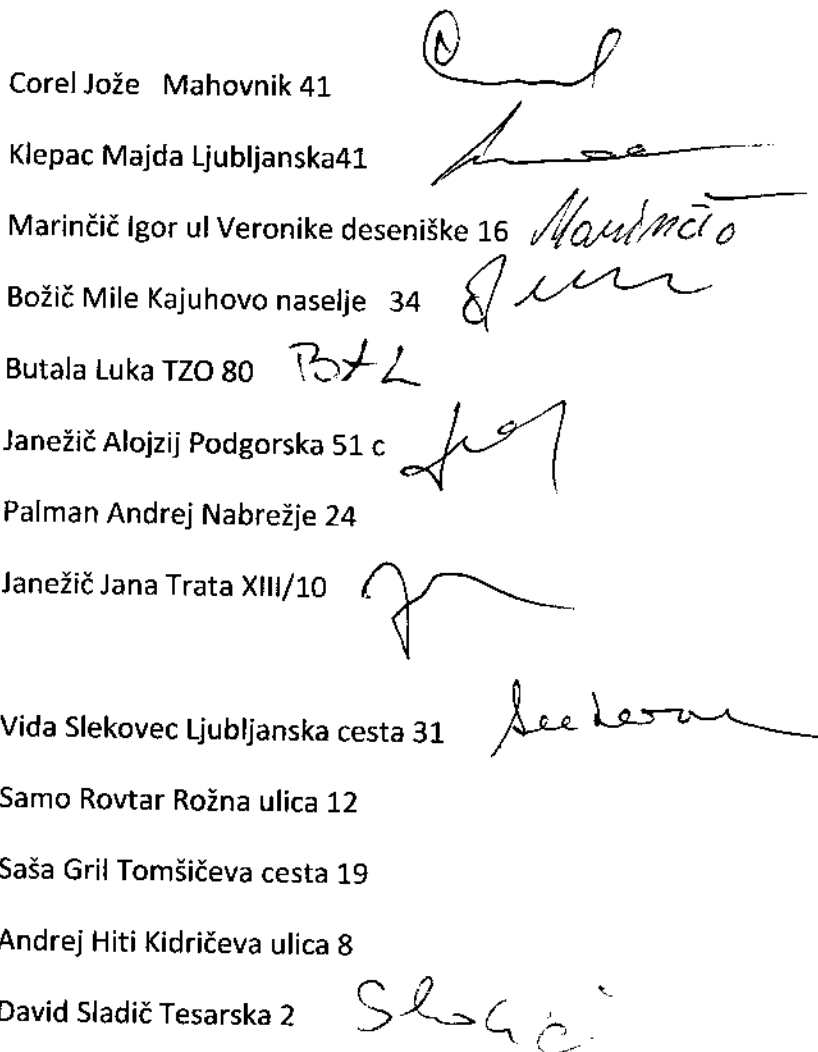 Corel Jože Mahovnik 41
Klepac Majda Ljubljanska41
Marinčič Igor ul Veronike deseniške 16 Marinčič
Božič Mile Kajuhovo naselje 34
Butala Luka TZO 80 BtL
Janežič Alojzij Podgorska 51 c
Palman Andrej Nabrežje 24
Janežič Jana Trata XIII/10
Vida Slekovec Ljubljanska cesta 31
Samo Rovtar Rožna ulica 12
Saša Gril Tomšičeva cesta 19
Andrej Hiti Kidričeva ulica 8
David Sladič Tesarska 2